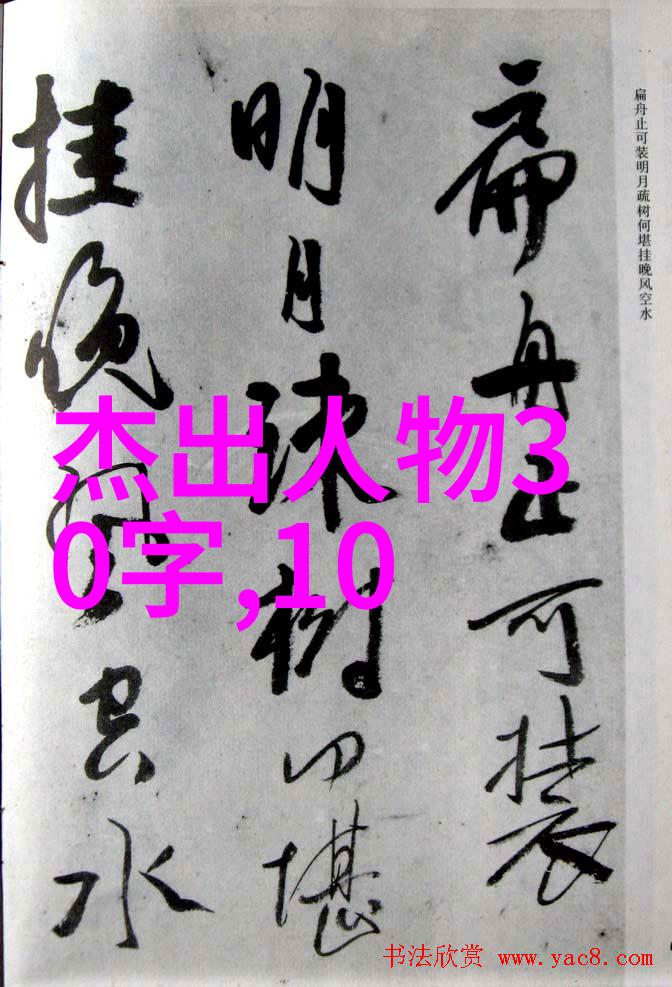 扁舟止可装
明月疏树何堪
挂晚风空水
扁舟止可装明月疏树何堪挂晚风空水
杰出人物3
0字,10
书法欣赏 www.yac8.com